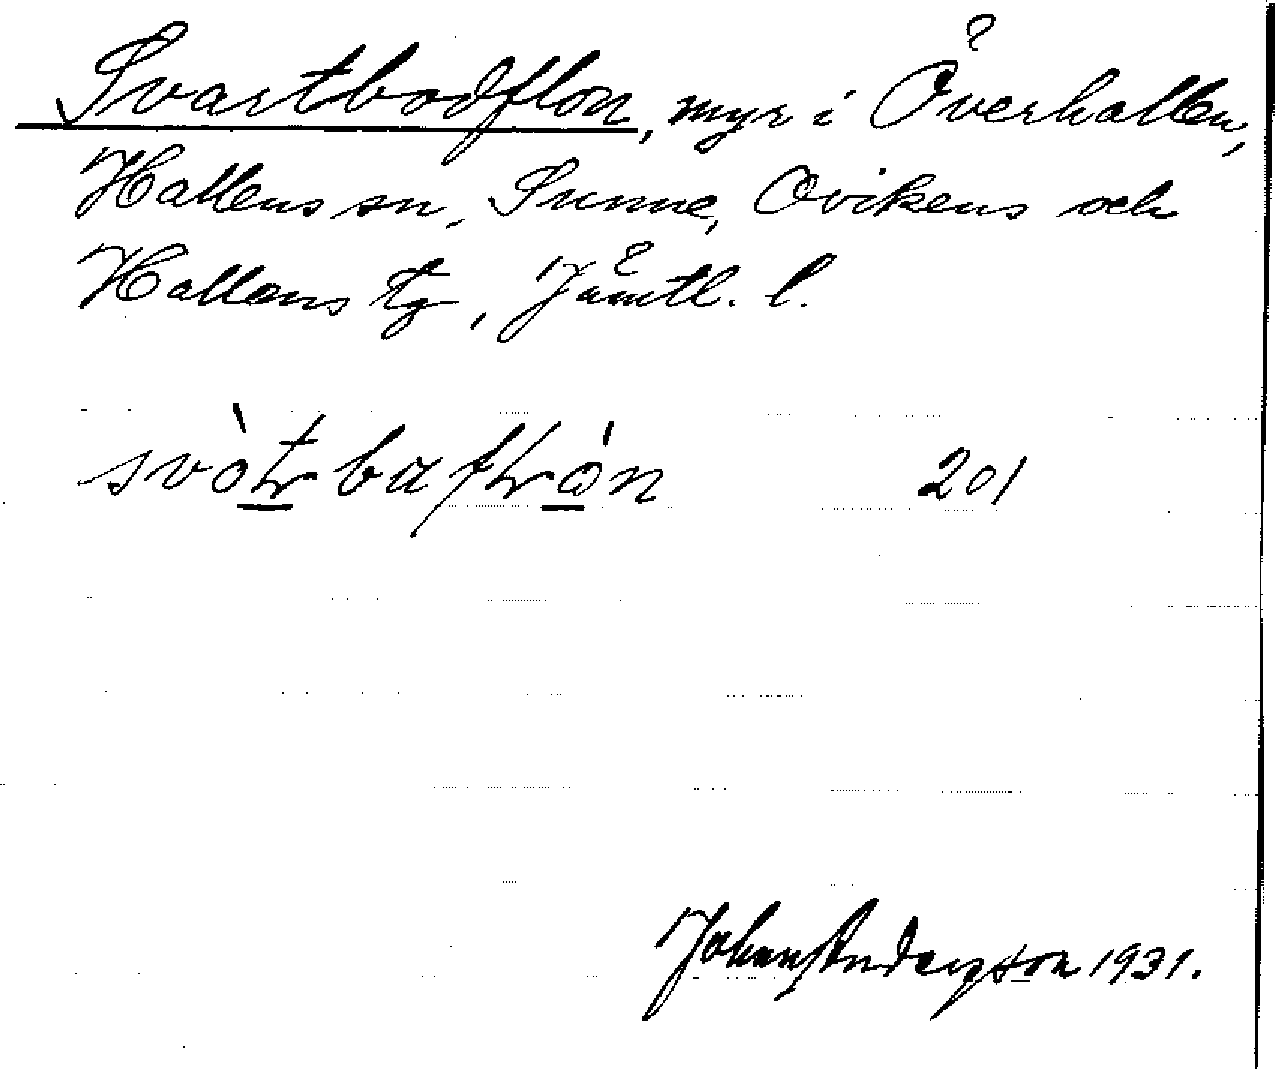 Svartbodflon, myr i Överhallen,
Hallens sn, Sunne, Ovikens och
Hallens tg, Jämtl. l.
svòtrbaflrón 201
Johan Andersson 1931.